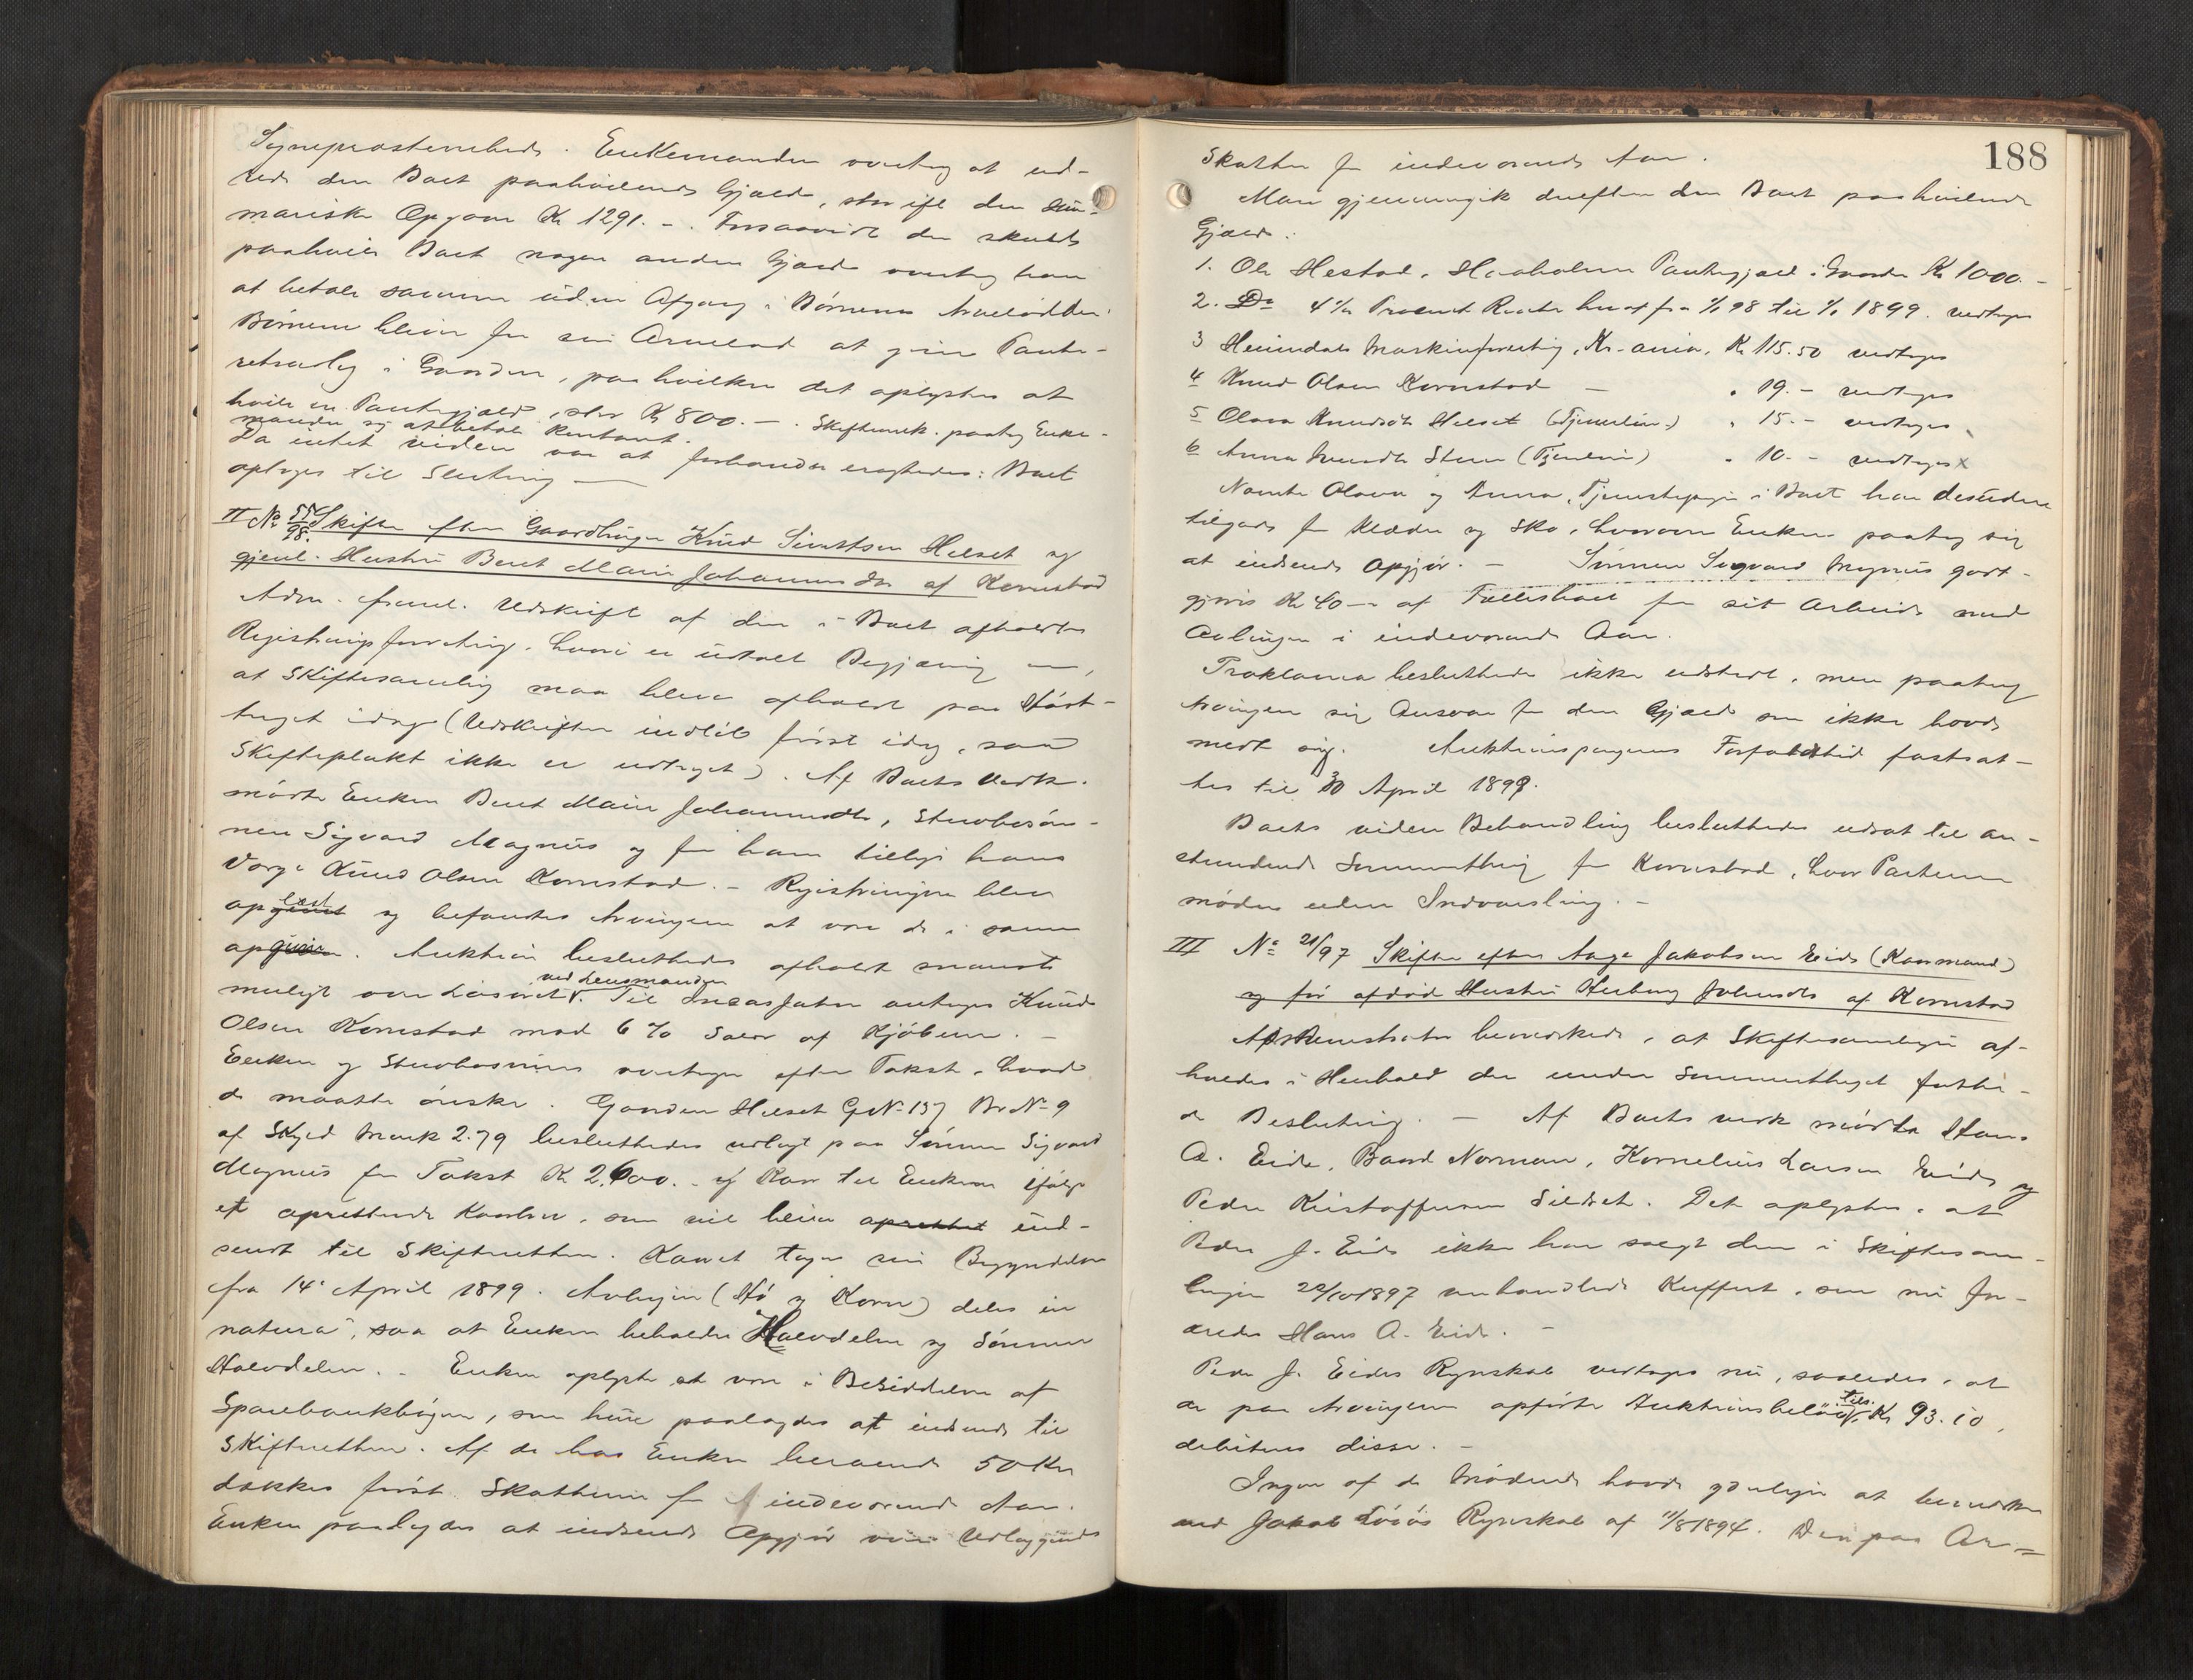 Enkemanden overtog at ud-
rede den Boet paahvilende Gjæld, stor ifl. den sum-
mariske Opgave Kr 1291.-. Forsaavidt der skulde
paahvile Boet nogen anden Gjæld overtog han
at betale samme uden Afgang i Børnenes Arvelodder.
Børnene bliver for sin Arvelod at give Pante-
retsudlæg i Gaarden, paa hvilken det oplystes at
hvile en Pantegjæld, stor Kr 800.-. Skifteomk. paatog Enke-
manden sig at betale kontant.
Da intet videre var at forhandle eragtedes: Boet
optages til Slutning
II No 55/98. Skifte efter Gaardbruger Knud Sivertsen Helset og
gjenl. Hustru Beret Marie Johannesdtr af Kornstad
Adm. freml. Udskrift af den i Boet afholdte
Registreringsforretning, hvori er udtalt Begjæring om,
at Skiftesamling maa blive afholdt paa Høst-
tinget idag (Udskriften indløb først idag, saa
Skifteplakt ikke er udtaget). Af Boets Vedk.
mødte Enken Beret Marie Johannesdtr, Stervbosøn-
nen Sigvard Magnus og for ham tillige hans
Værge Knud Olsen Kornstad. - Registreringen blev
oplæst og befandtes Arvingerne at være de i samme
opgivne. Auktion besluttedes afholdt snarest
muligt over Løsøret ved Lensmanden. Til Incassator antoges Knud
Olsen Kornstad mod 6 % Salær af Kjøberne. -
Enken og Stervbosønnen overtager efter Takst, hvad
de maatte ønske. Gaarden Helset GNo 137 BrNo 9
af Skyld Mark 2.79 besluttedes udlagt paa Sønnen Sigvard
Magnus for Takst Kr 2,600.- og Kaar til Enken ifølge
et oprettende Kaarbrev, som vil blive oprettet ind-
sendt til Skifteretten. Kaaret tager sin Begyndelse
fra 14 April 1899. Avlingen (Hø og Korn) deles in
natura, saa at Enken beholder Halvdelen og Sønnen
Halvdelen. - Enken oplyste at være i Besiddelse af
Sparebankbogen, som hun paalagdes at indsende til
Skifteretten. Af de hos Enken beroende 50 Kr
dækkes først Skatterne for indeværende Aar.
Enken paalagdes at indsende Opgjør over Udlæggene
188
Skatter for indeværende Aar.
Man gjennemgik derefter den Boet paahvilende
Gjæld:
1. Ole Hestad, Haaholmen Pantegjæld i Gaarden Kr 1000.-
2. Do 4 1/2 Procent Rente heraf fra 1/1 98 til 1/1 1899. vedtages
3 Heimdals Maskinforretning, Kr-ania, Kr 115.50 vedtages
4 Knud Olsen Kornstad - " 19.- vedtages
5 Olava Knudsdtr Helset (Tjenerløn) " 15.- vedtages
6 Anna Stene (Tjenerløn) " 10.- vedtages x
Nævnte Olava og Anna, Tjenestepiger i Boet har desuden
tilgode for Klæder og Sko, hvorover Enken paatog sig
at indsende Opgjør. - Sønnen Sigvard Magnus godt-
gjøres Kr 40.- af Fællesboet for sit Arbeide med
Avlingen i indeværende Aar.
Proklama besluttedes ikke udstedt, men paatog
Arvingerne sig Ansvar for den Gjæld som ikke havde
meldt sig. Auktionspengenes Forfaldstid fastsat-
tes til 30 April 1899.
Boets videre Behandling besluttedes udsat til an-
stundende Sommerthing for Kornstad, hvor Parterne
møder uden Indvarsling. -
III No 21/97 Skifte efter Aage Jakobsen Eide (Kaarmand)
og før afdød Hustru Herborg Johnsdtr af Kornstad
Administrator bemærkede, at Skiftesamlingen af-
holdes i Henhold den under Sommerthinget fattede
Beslutning. - Af Boets vedk mødte Hans
A. Eide, Baard Norman, Kornelius Larsen Eide og
Peder Kristoffersen Sildset. Det oplystes, at
Peder J. Eide ikke har solgt den i Skiftesam-
lingen 22/10 1897 omhandlede Kuffert, som nu for-
æredes Hans A. Eide. -
Peder J. Eides Regnskab vedtages nu, saaledes, at
de paa Arvingerne opførte Auktionsbeløb tils. Kr 93.10,
debiteres disse. -
Ingen af de Mødende havde yderligere at bemærke
ved Jakob Løvøs Regnskab af 11/8 1894. Den paa Ar=